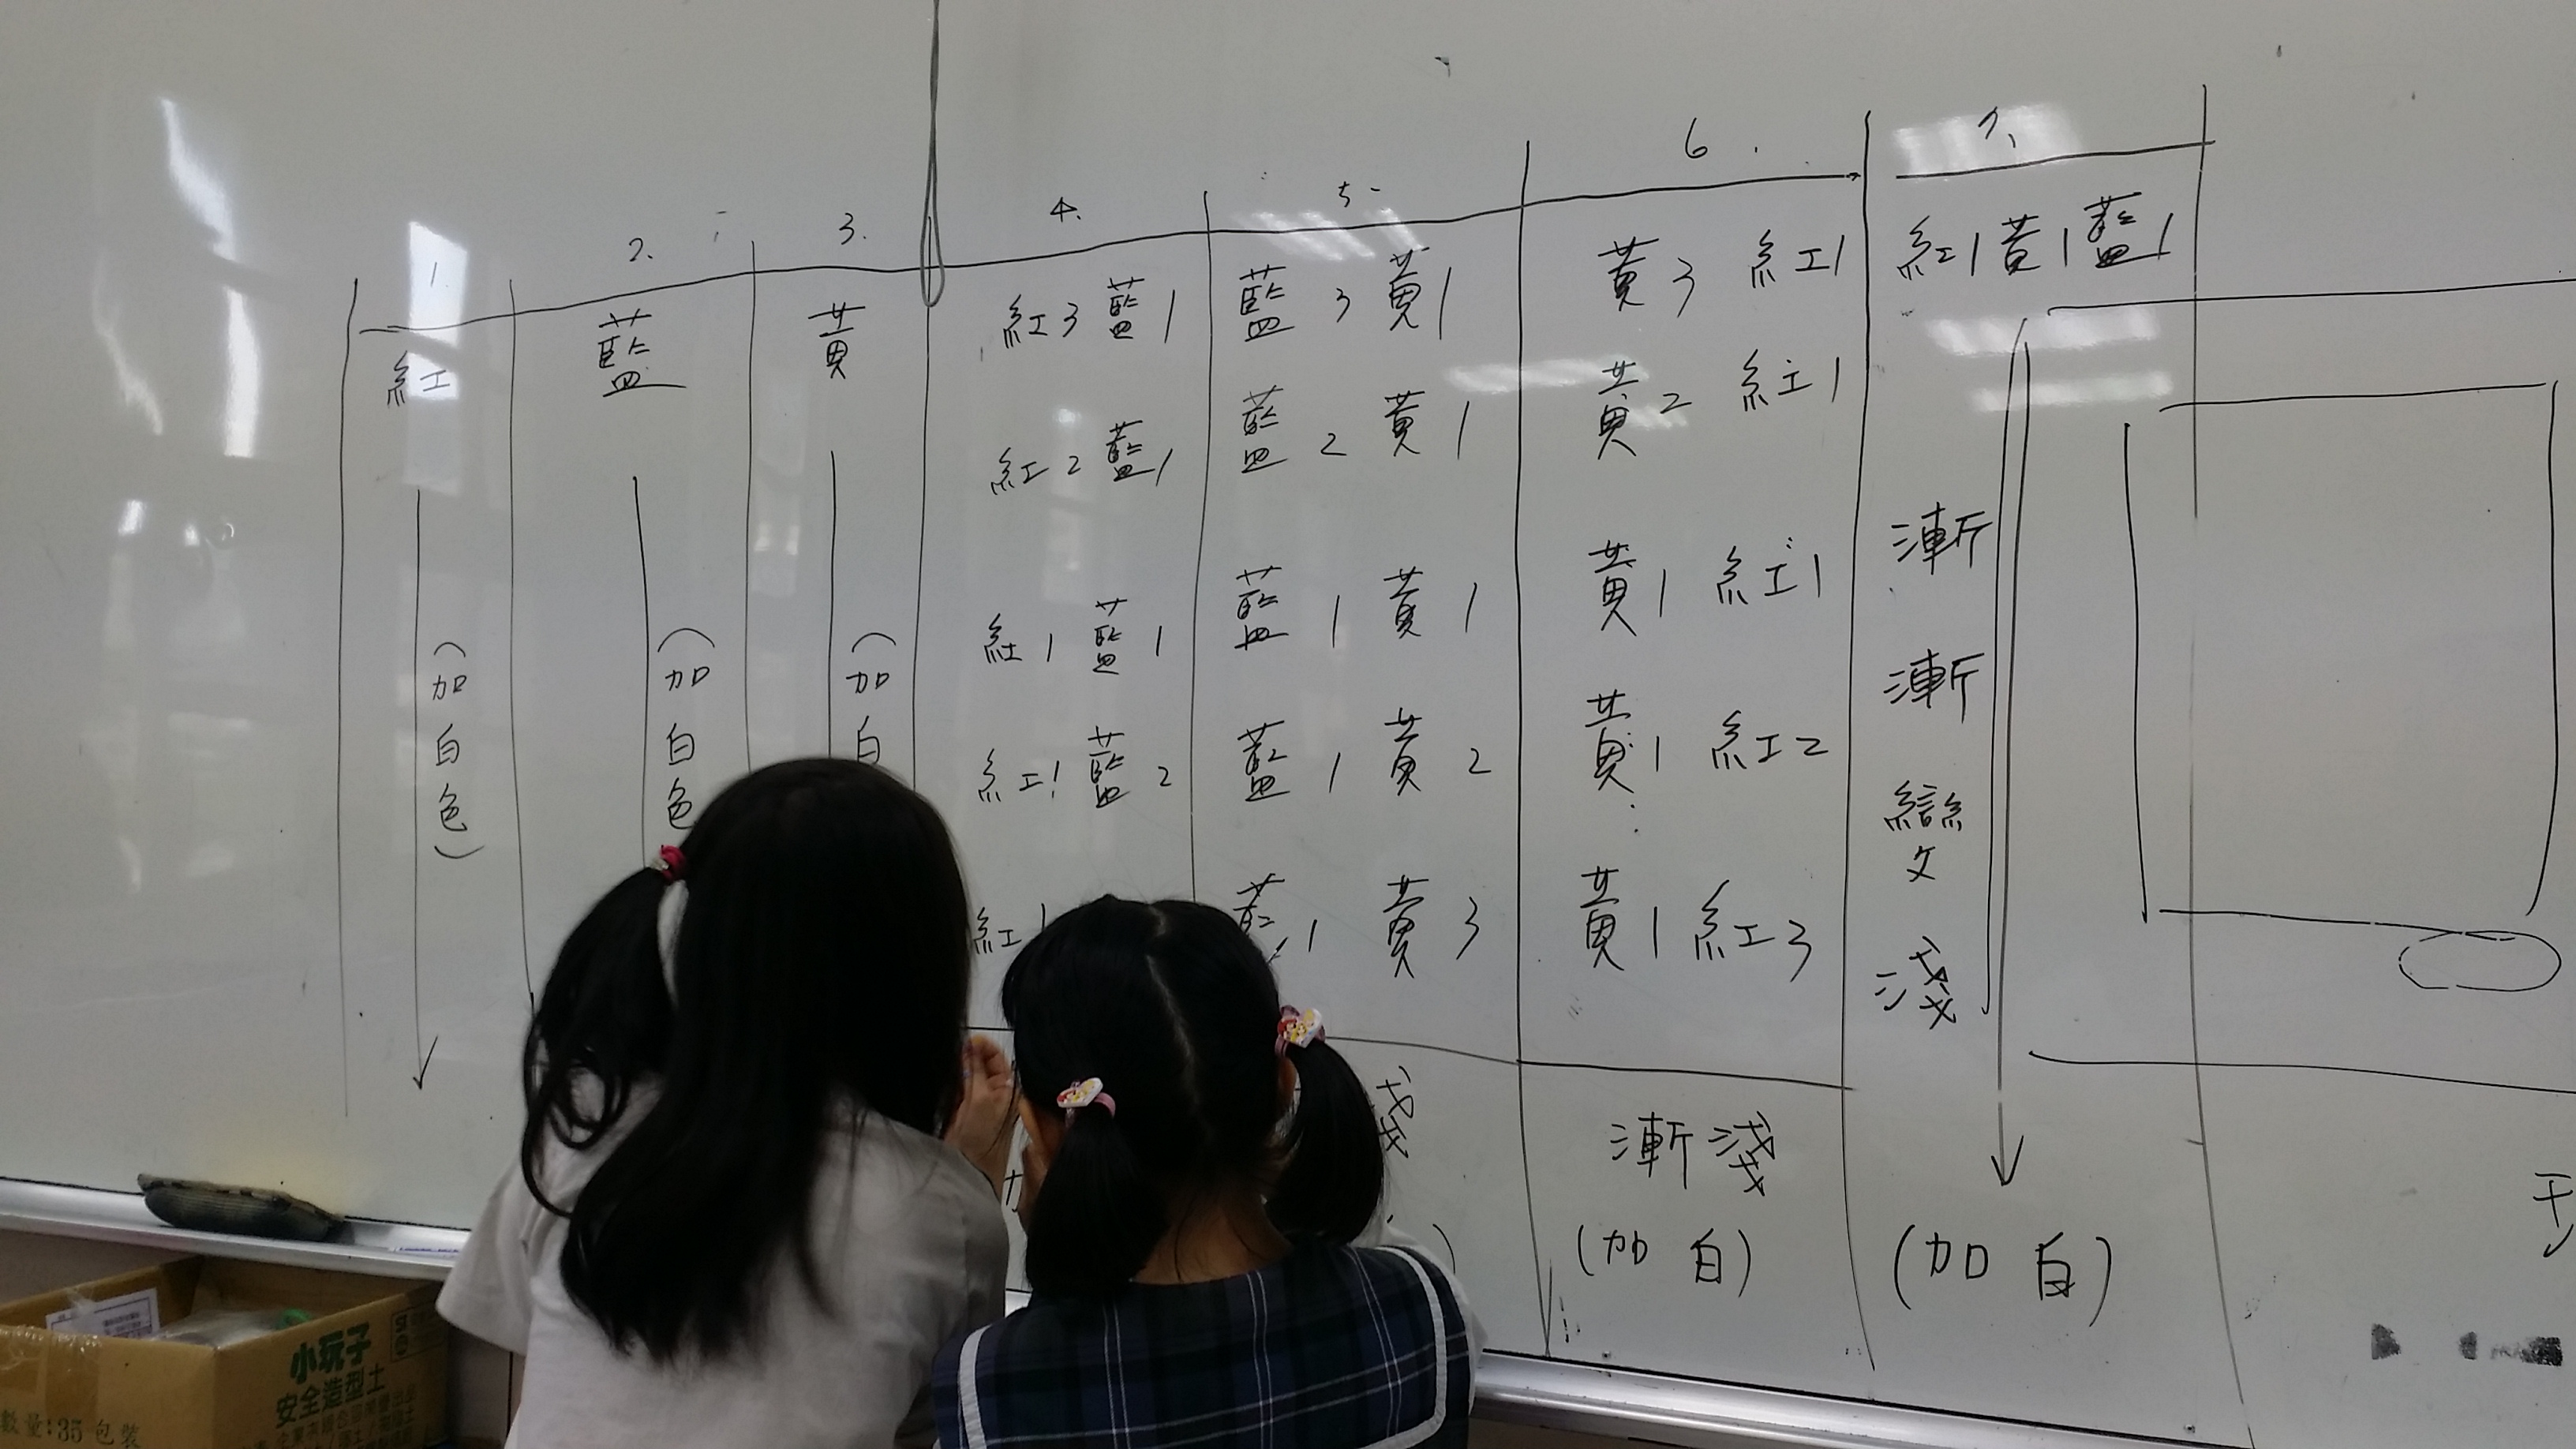 1.
紅
(加白色)
2.
藍
(加白色
3.
黃
(加白
4.
紅3 藍1
紅2 藍1
紅1 藍1
紅1 藍2
紅1
5.
藍3 黃1
藍2 黃1
藍1 黃1
藍1 黃2
藍1 黃3
淺
)
6.
黃3 紅1
黃2 紅1
黃1 紅1
黃1 紅2
黃1 紅3
漸淺
(加白)
7.
紅1黃1藍1
漸漸變淺
(加白)
小玩子
安全造型土
數量:35包裝